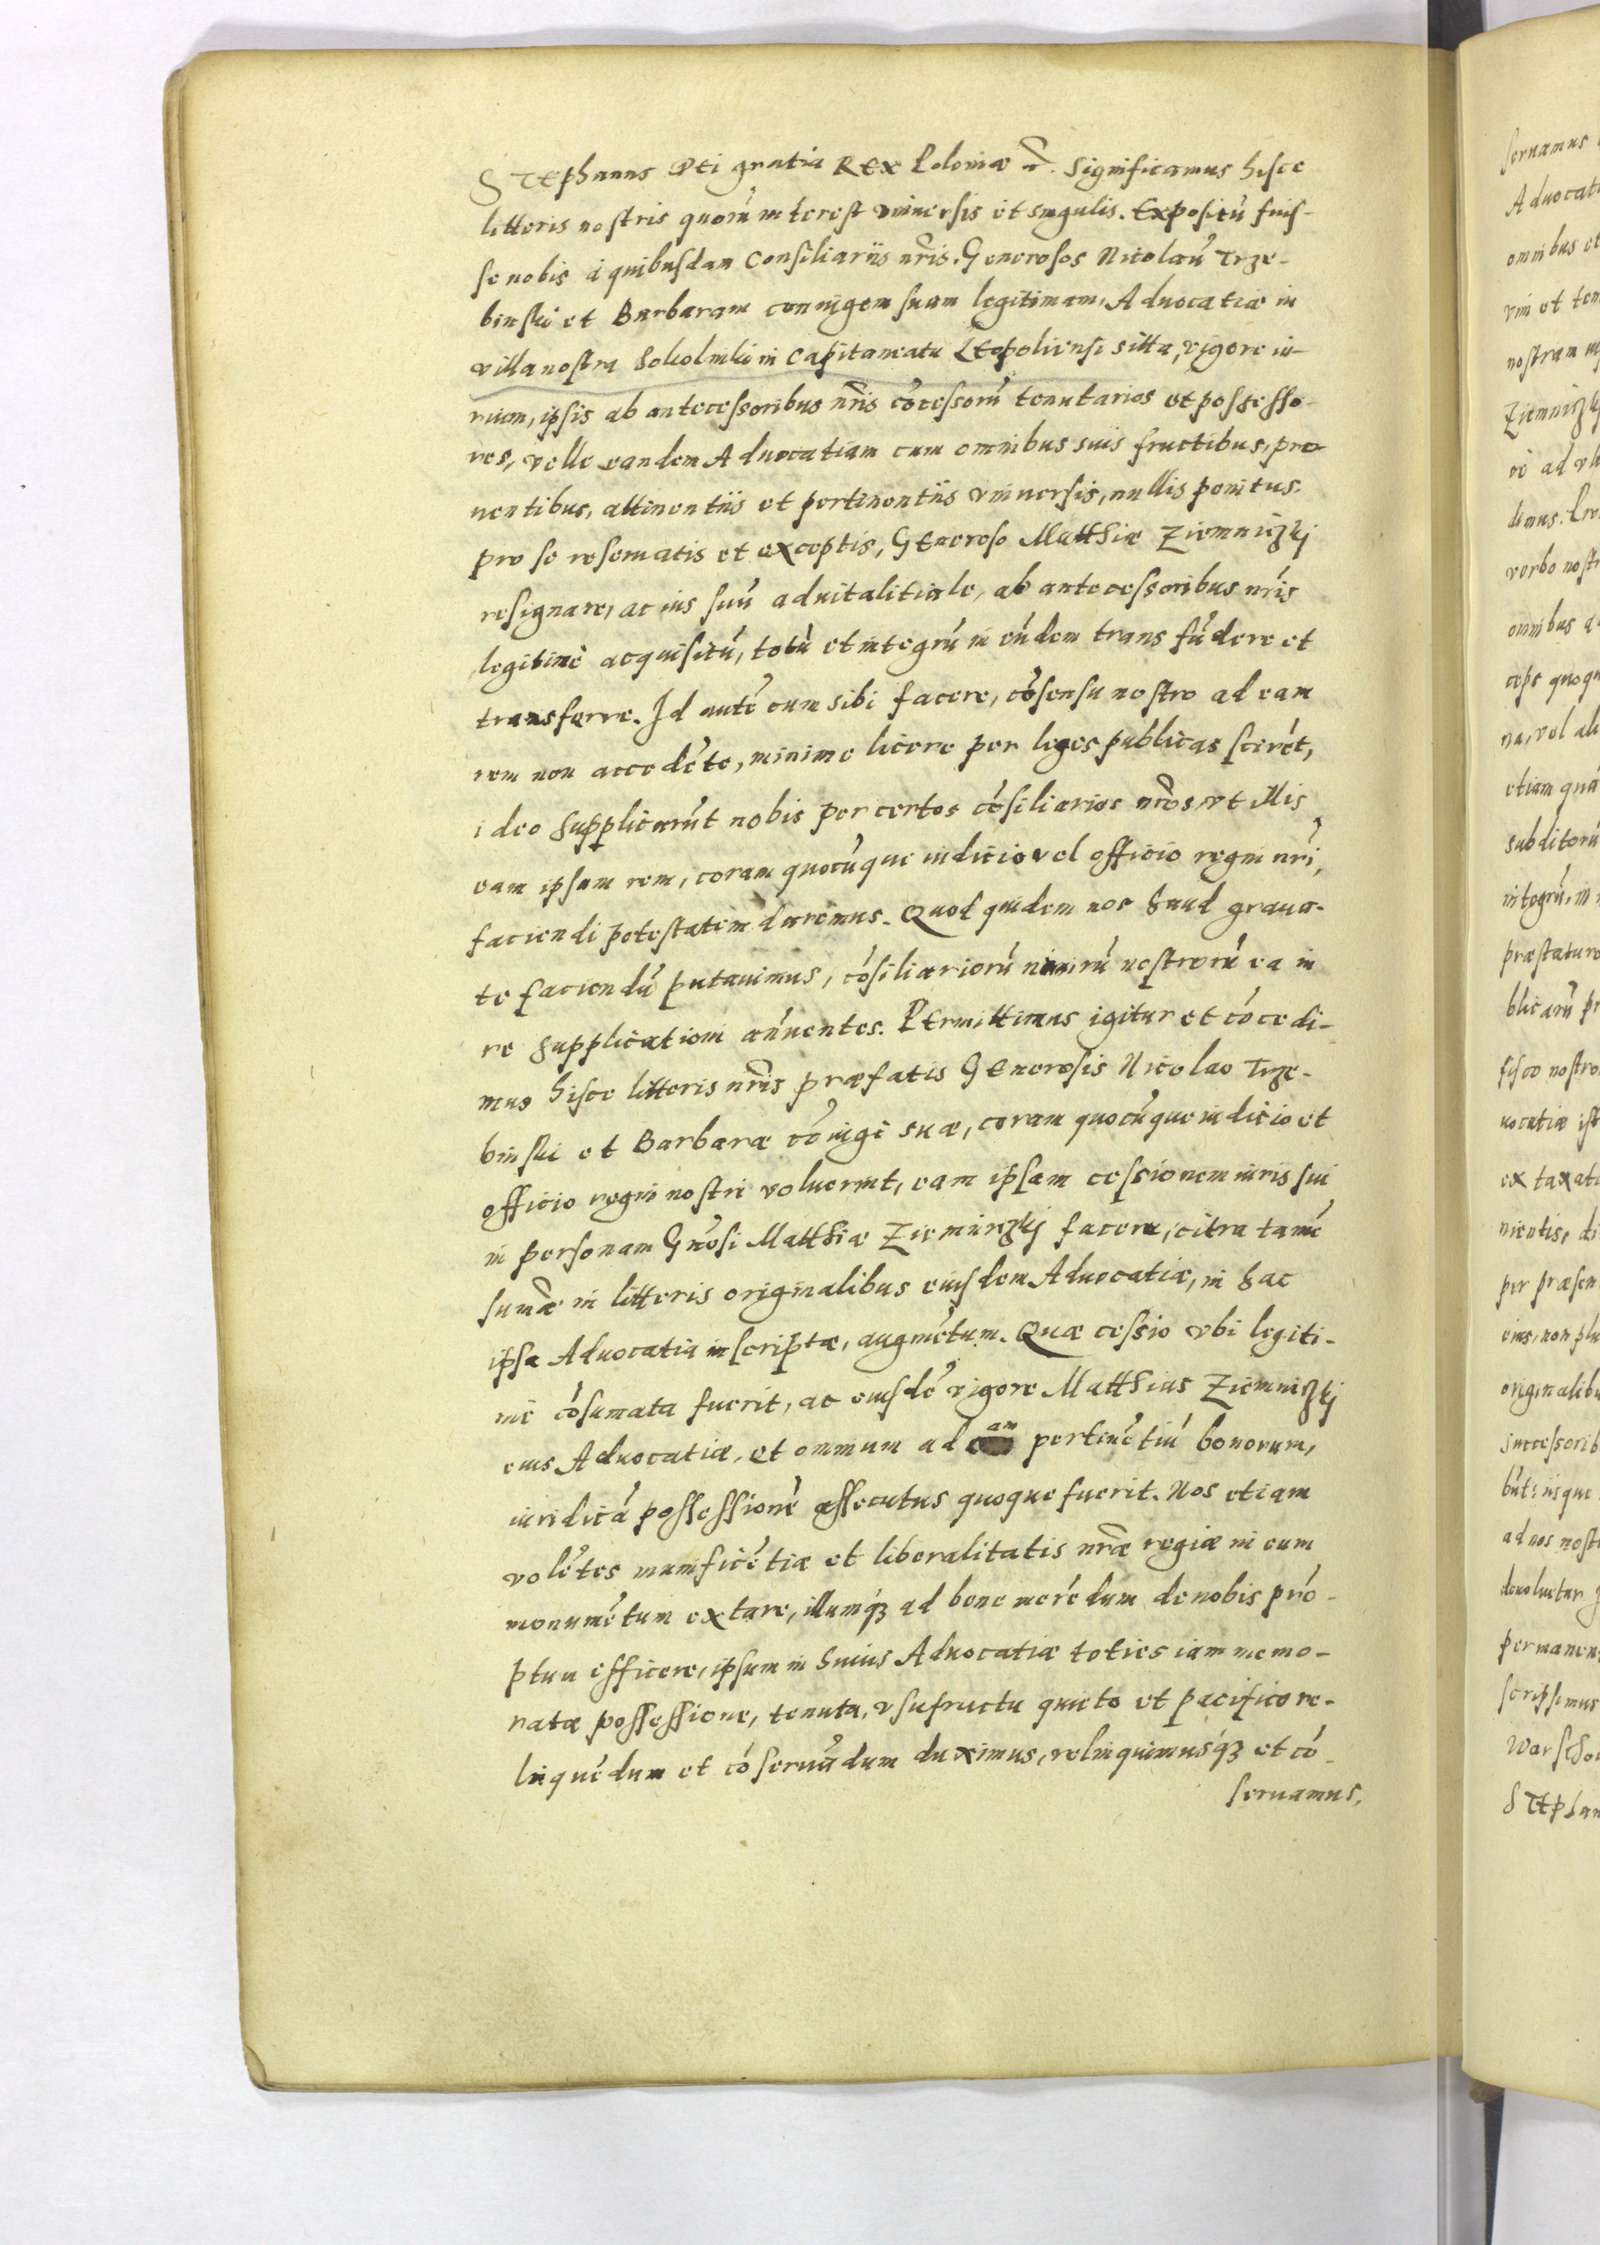 STEphanus DEi gratia REx Poloniæ &. Significamus hisce
litteris nostris quorũ interest vniuersis et singulis. Expositũ fuis-
se nobis à quibusdam Consiliariis nr̃is. Generosos Nicolaũ Trze-
binski et Barbaram coniugem suam legitimam, Aduocatiæ in
villa nostra Sokolniki in Capitaneatu LEopoliensi sitta, vigore iu-
rium, ipsis ab antecessoribus nr̃is cõcessorũ tenutarios et possesso-
res, velle eandem Aduocatiam cum omnibus suis fructibus, pro
uentibus, attinentiis et pertinentiis vniuersis, nullis penitus
pro se reseruatis et exceptis, GEneroso Matthiæ Ziemniczkij
resignare, ac ius suũ aduitalitiale, ab antecessoribus nr̃is
legitimè acquisitũ, totũ et integrũ in eũdem transfũdere et
transferre. Id autẽ cum sibi facere, cõsensu nostro ad eam
rem non accedẽte, minime licere per leges publicas scirẽt,
ideo supplicarũt nobis per certos cõsiliarios nr̃os, vt illis
eam ipsam rem, coram quocũque iudicio vel officio regni nr̃i,
faciendi potestatem daremus. Quod quidem nos haud graua-
te faciendũ putauimus, cõsiliariorũ nimirũ nostrorũ ea in
re supplicationi annuentes. PErmittimus igitur et cõcedi-
mus hisce litteris nr̃is præfatis GEnerosis Nicolao Trze-
binski et Barbaræ cõiugi suæ, coram quocũque iudicio et
officio regni nostri voluerint, eam ipsam cessionem iuris sui
in personam Gñosi Matthiæ Ziemniczkij facere, citra tamẽ
sum̃æ in litteris originalibus eiusdem Aduocatiæ, in hac
ipsa Aduocatia inscriptæ, augmẽtum. Quæ cessio vbi legiti-
mè cõsumata fuerit, ac eiusdẽ vigore Matthias Ziemniczkij
eius Aduocatiæ, et omnium ad eam pertinẽtiũ bonorum,
iuridicã possessionẽ assecutus quoque fuerit. Nos etiam
volẽtes munificẽtiæ et liberalitatis nr̃æ regiæ in eum
monumẽtum extare, illumq́ꝫ ad bene merẽdum de nobis prõ-
ptum efficere, ipsum in huius Aduocatiæ toties iam memo-
ratæ possessione, tenuta, vsufructu quieto et pacifico re-
linquẽdum et cõseruãdum duximus, relinquimusq́ꝫ et cõ-
seruamus,